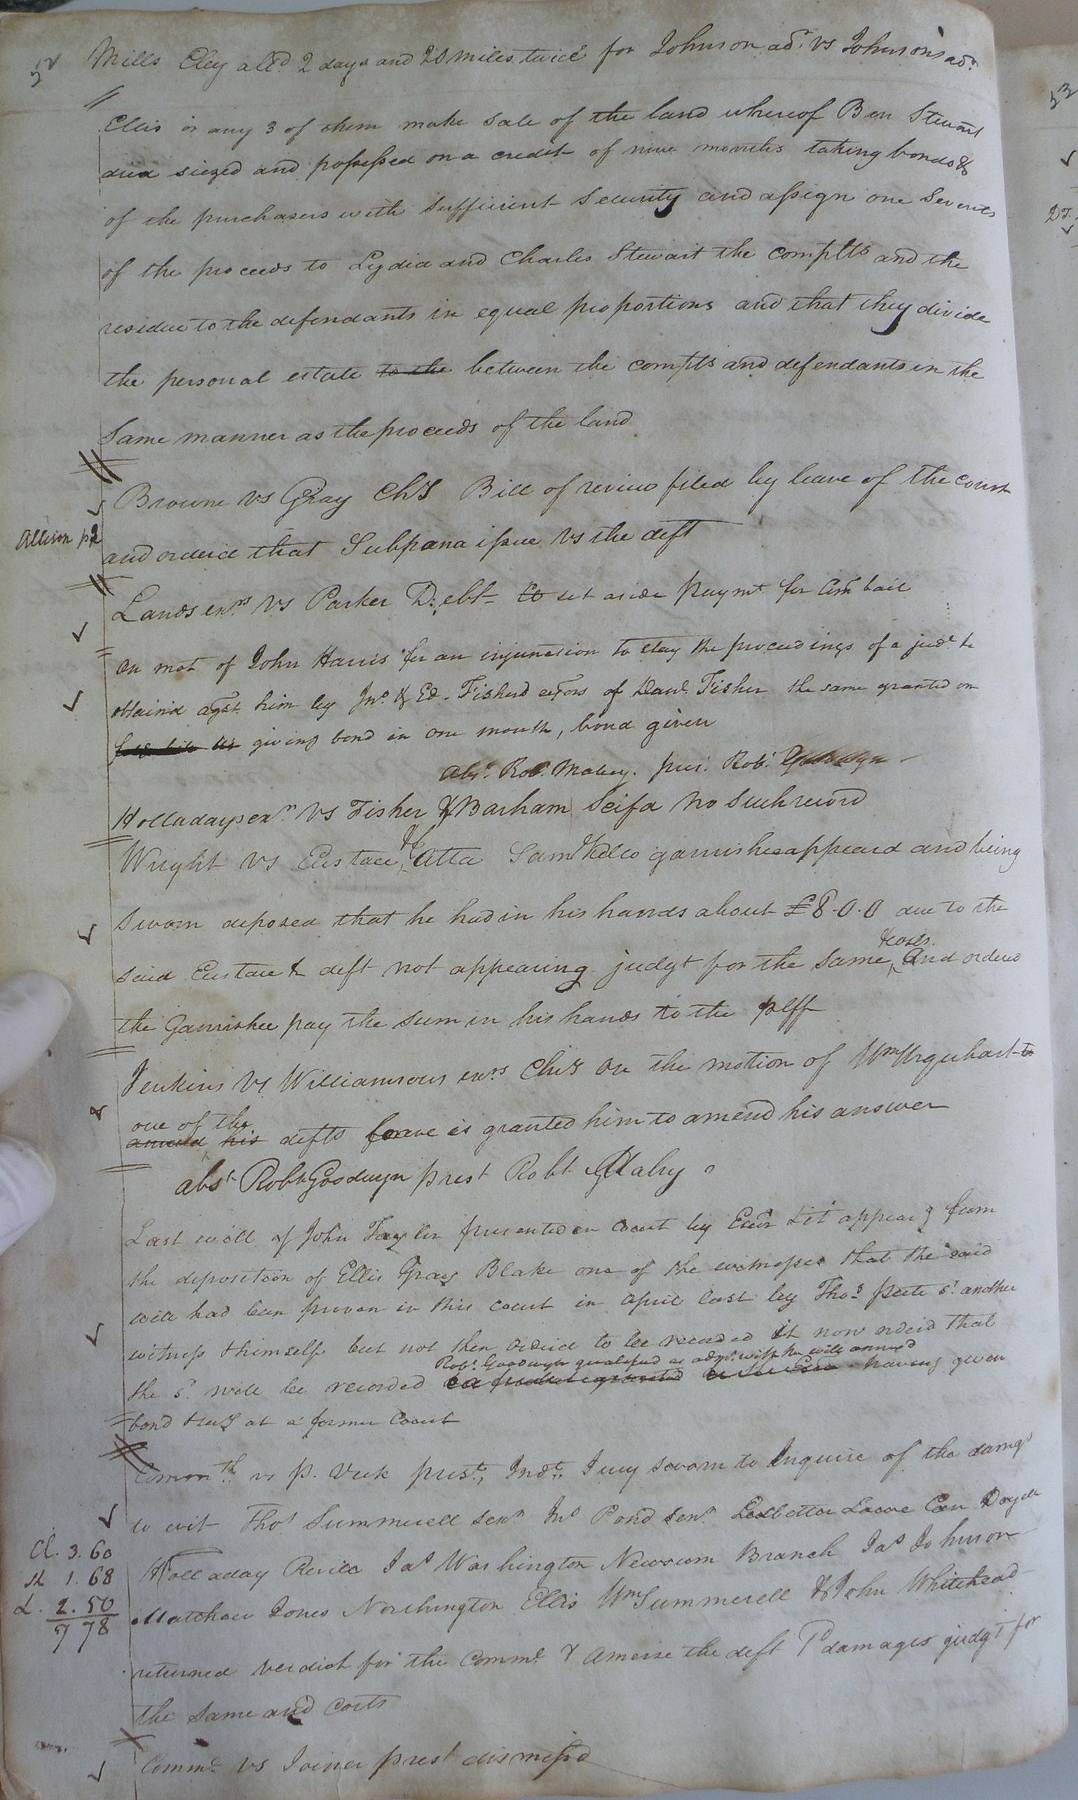 52
Mills Cley attd 2 days and 20 miles twice for Johnson adr vs Johnson's adr
Ellis or any 3 of them make sale of the land whereof Ben Stewart
died siezed and possessed on a credit of nine months taking bonds &
of the purchasers with sufficient security and assign one seventh
of the proceeds to Lydia and Charles Stewart the complts and the
residue to the defendants in equal proportions and that they divide
the personal estate to the between the complts and defendants in the
same manner as the proceeds of the land
Browne vs Gray Chy Bill of review filed by leave of the court
Allison pd
and ordered that Subpana issue vs the deft
Lands exrs vs Parker Debt to set aside paymt for Com bail
On mot of John Harris for an injunction to stay the proceedings of a judt he
obtained agst him by Jno & Ed. Fisher exors of Danl Fisher the same granted on
giving bond in one month, bond given
abst Rob Mabry. pres. Robt
Holladays exr vs Fisher & Barham Scifa no such record
Wright vs Eustace &c Atta Saml Kello garnishee appeard and being
sworn deposed that he had in his hands about £8.0.0 due to the
said Eustace & deft not appearing judgt for the same & costs And ordered
the Garnishee pay the sum in his hands to the plff
Jenkins vs Williamsons exrs Chy On the motion of Wm Urquhart to
amend his one of the defts leave is granted him to amend his answer
abst Robt Goodwyn prest Robt Mabry
Last will of John Taylor presented in Court by Exor & it appearg from
the deposition of Ellis Gray Blake one of the witnesses that the said
will had been proven in this court in April last by Thos Peete sr another
witness thimself but not then ordered to be recorded it now ordered that
the sd will be recorded Robt Goodwyn qualified as admr with the will annexd having given
bond & secy at a former Court
Comonth vs P. Vick prest, Indt Jury sworn to Inquire of the damgs
to wit Thos Summerell senr Jno Pond senr Ledbetter Lowe Doyel
Holladay Revile Jas Washington Newsum Branch Jas Johnson
Matthew Jones Northington Ellis Wm Summerell & John Whitehead
Cl. 3.60
Sh 1.68
L. 2.50
7 78
returned verdict for the Commt & Amerse the deft 1d damages judgt for
the same and costs
Commt vs Joiner prest dismissd
53